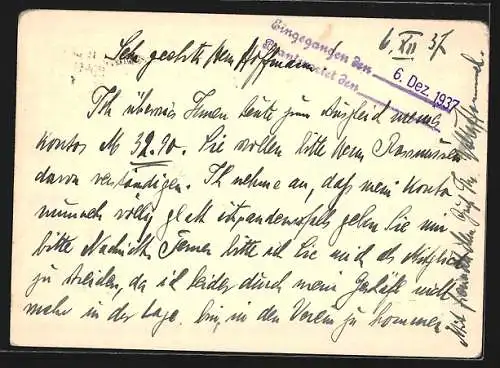 6. XII 37
Eingegangen den 6. Dez. 1937
Beantwortet den
Sehr geehrter Herr Hoffmann!
Ich überwies Ihnen heute zum Ausgleich meines
Kontos M 32.90. Sie wollen bitte Herrn Rasmussen
davon verständigen. Ich nehme an, daß mein Konto
nunmehr völlig glatt ist, andernfalls geben Sie mir
bitte Nachricht. Ferner bitte ich Sie mich als Mitglied
zu streichen, da ich leider durch mein Geschäft nicht
mehr in der Lage bin, in den Verein zu kommen.
Mit